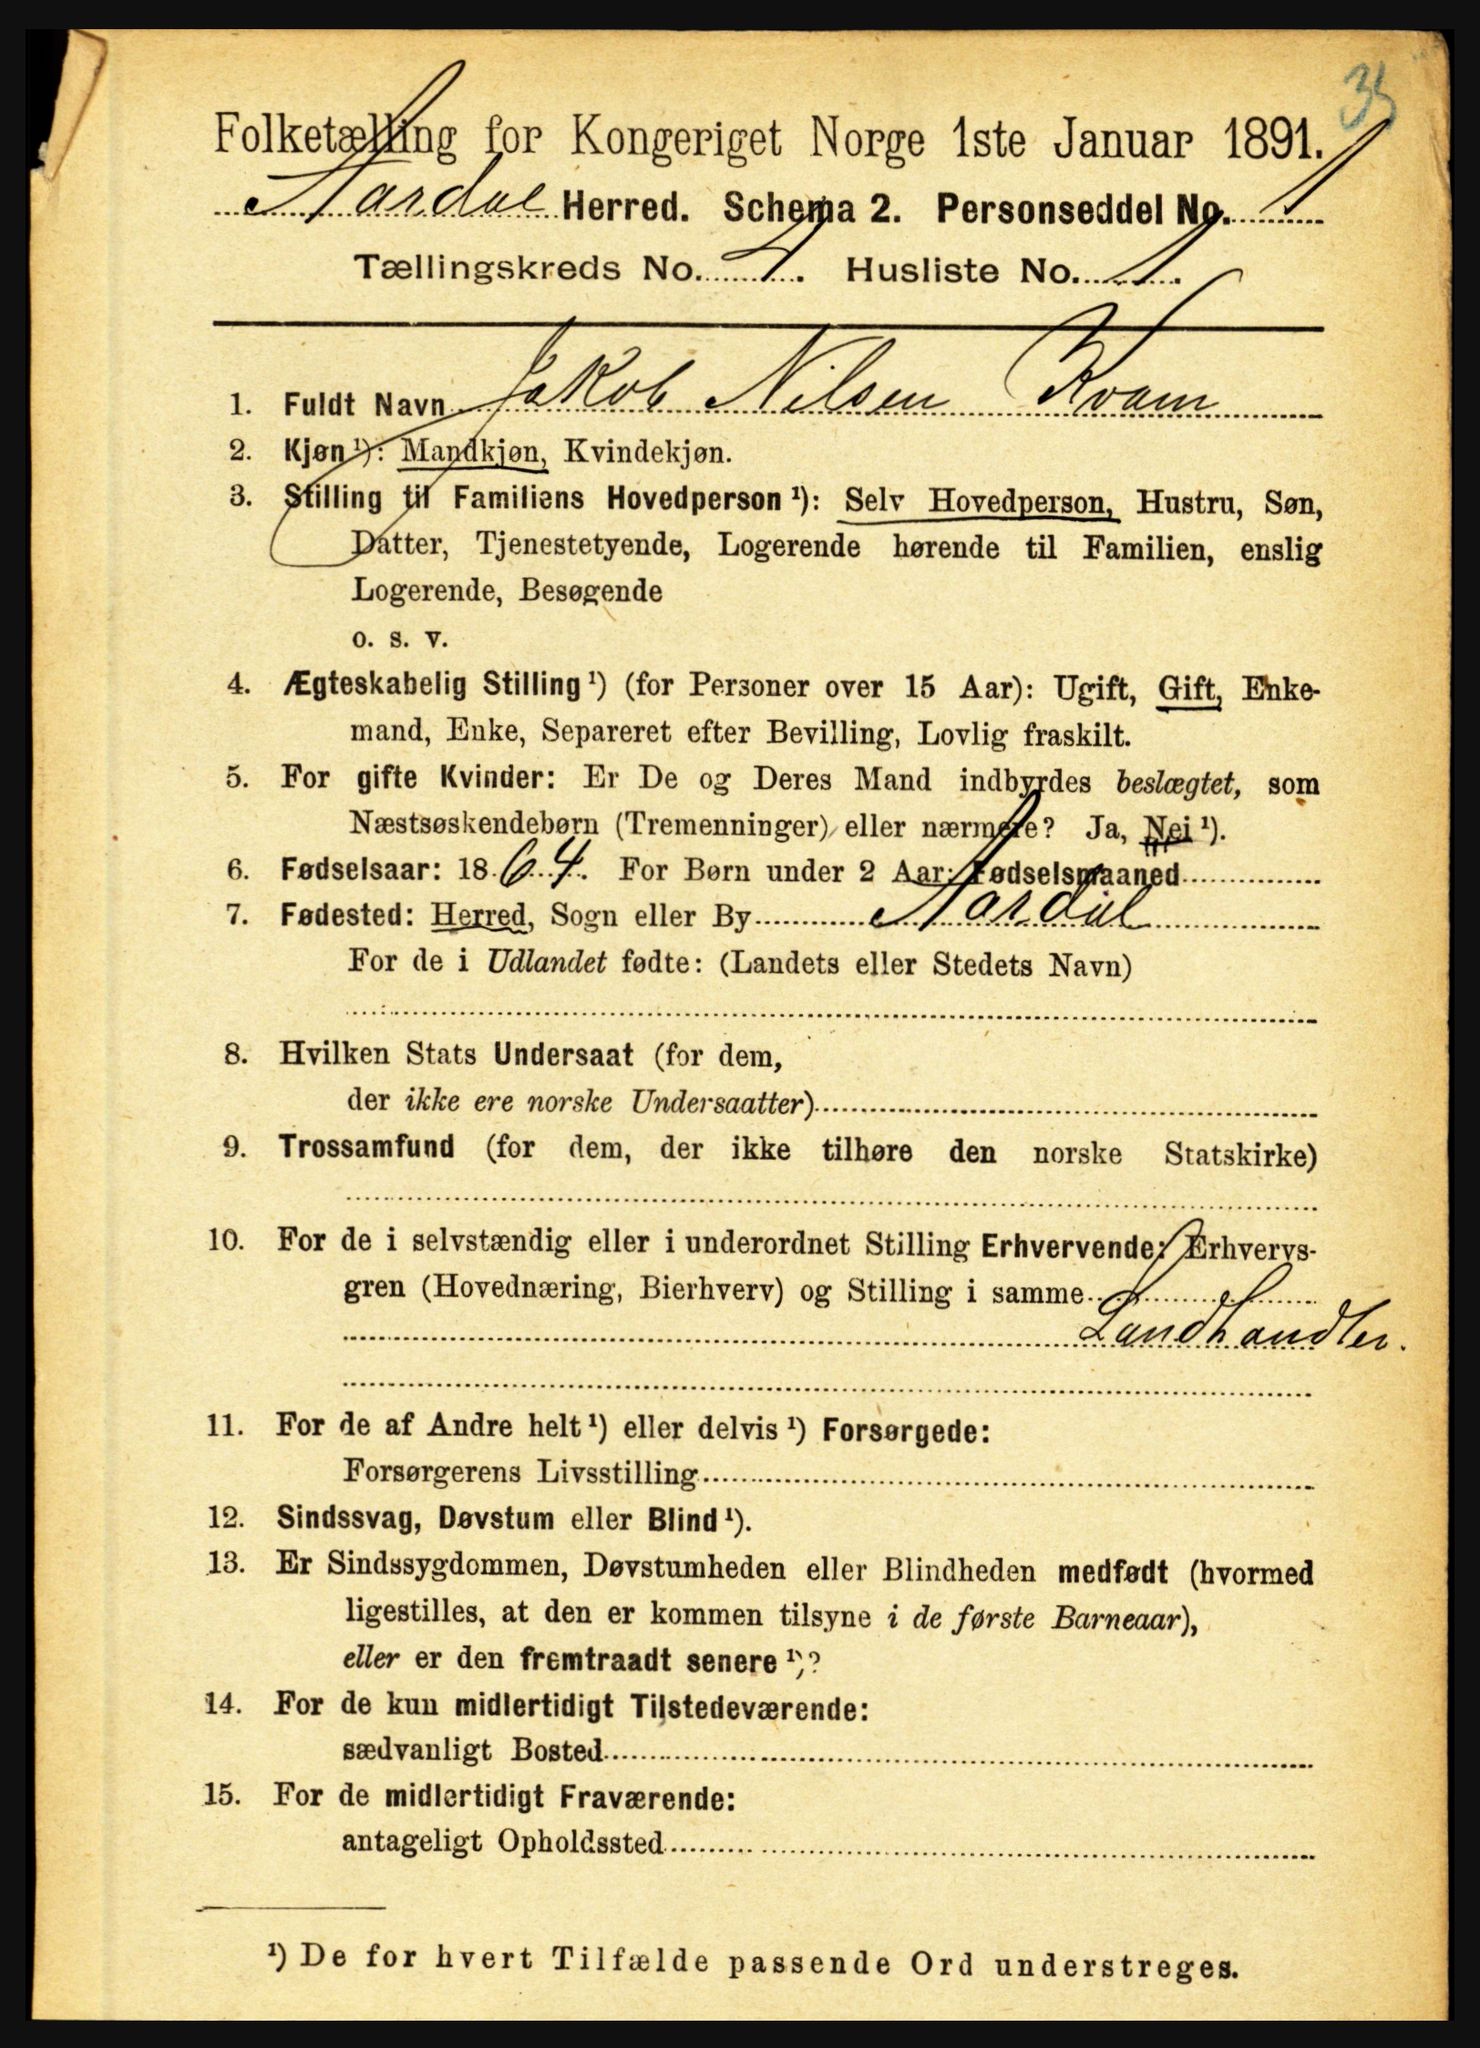 35
Folketælling for Kongeriget Norge 1ste Januar 1891.
Aardal Herred. Schema 2. Personseddel No. 1
Tællingskreds No. 1. Husliste No. 1.
1. Fuldt Navn Jakob Nilsen Kvam
2. Kjøn¹): Mandkjøn, Kvindekjøn.
3. Stilling til Familiens Hovedperson¹): Selv Hovedperson, Hustru, Søn,
Datter, Tjenestetyende, Logerende hørende til Familien, enslig
Logerende, Besøgende
o. s. v.
4. Ægteskabelig Stilling¹) (for Personer over 15 Aar): Ugift, Gift, Enke-
mand, Enke, Separeret efter Bevilling, Lovlig fraskilt.
5. For gifte Kvinder: Er De og Deres Mand indbyrdes beslægtet, som
Næstsøskendebørn (Tremenninger) eller nærmere? Ja, Nei¹).
6. Fødselsaar: 1864. For Børn under 2 Aar: Fødselsmaaned
7. Fødested: Herred, Sogn eller By Aardal
For de i Udlandet fødte: (Landets eller Stedets Navn)
8. Hvilken Stats Undersaat (for dem,
der ikke ere norske Undersaatter)
9. Trossamfund (for dem, der ikke tilhøre den norske Statskirke)
10. For de i selvstændig eller i underordnet Stilling Erhvervende: Erhvervs-
gren (Hovednæring, Bierhverv) og Stilling i samme
Landhandler.
11. For de af Andre helt¹) eller delvis¹) Forsørgede:
Forsørgerens Livsstilling
12. Sindssvag, Døvstum eller Blind¹).
13. Er Sindssygdommen, Døvstumheden eller Blindheden medfødt (hvormed
ligestilles, at den er kommen tilsyne i de første Barneaar),
eller er den fremtraadt senere¹)?
14. For de kun midlertidigt Tilstedeværende:
sædvanligt Bosted
15. For de midlertidigt Fraværende:
antageligt Opholdssted
¹) De for hvert Tilfælde passende Ord understreges.